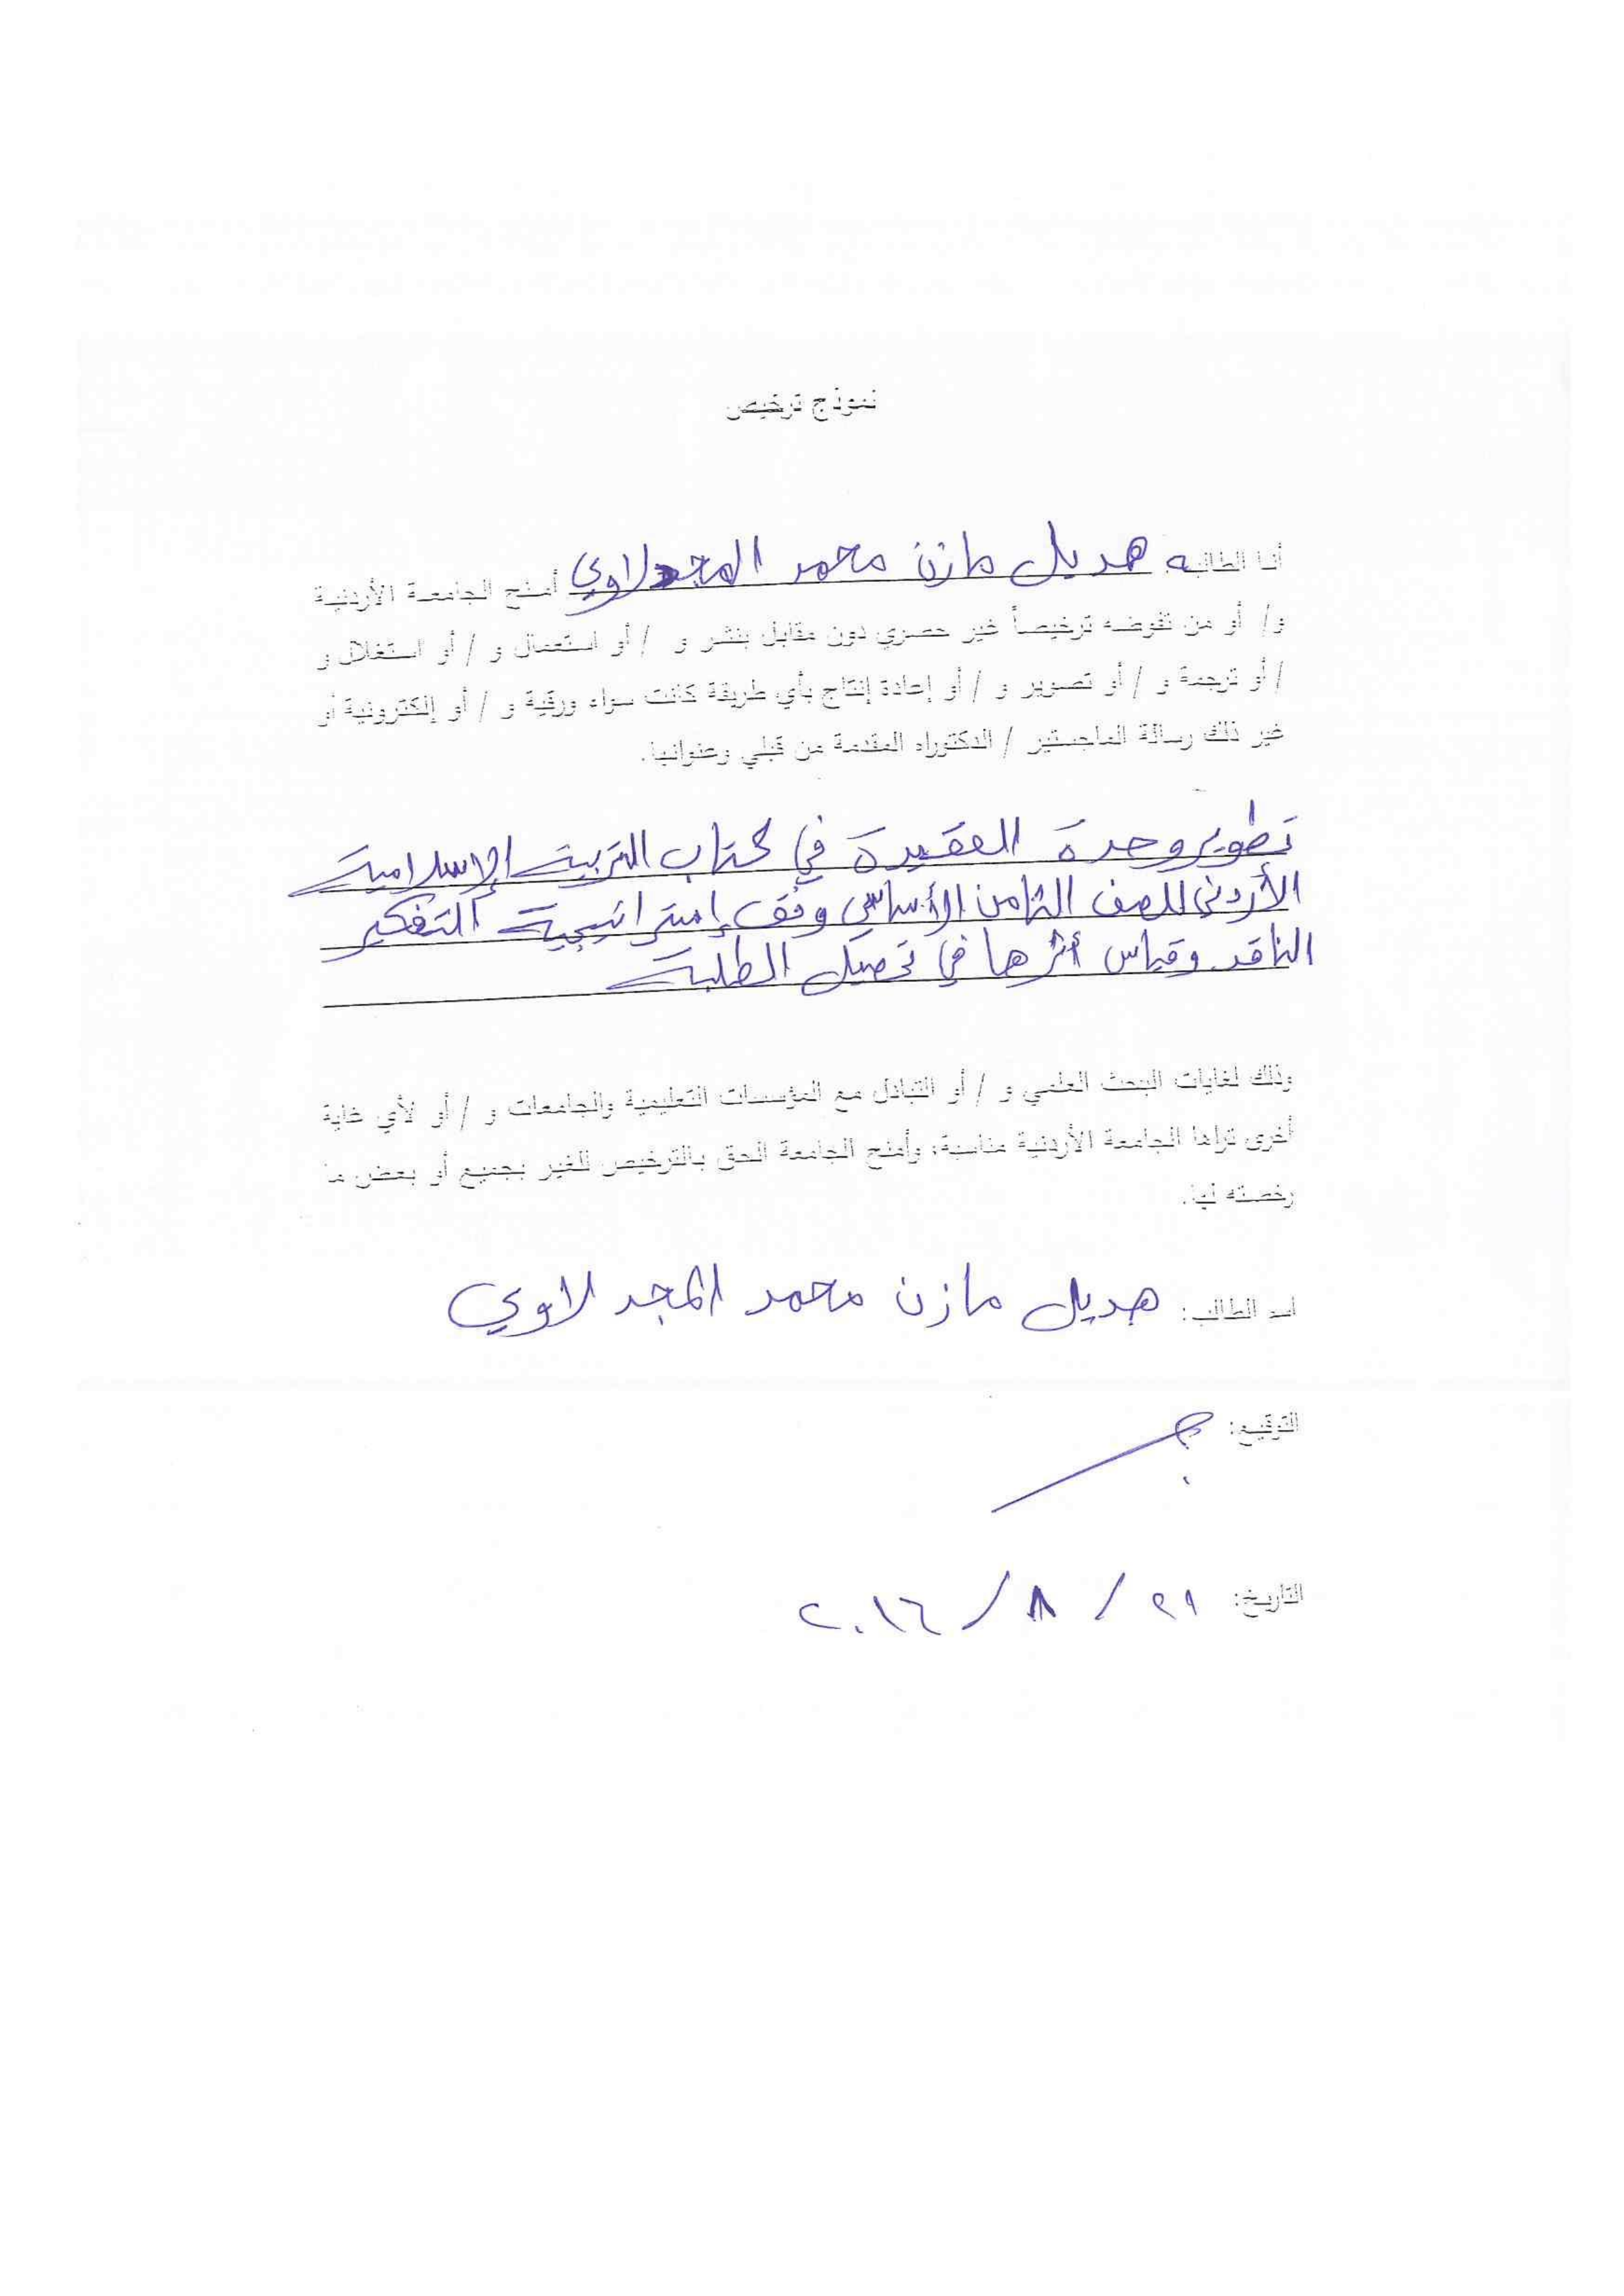 نموذج ترخيص
أنا الطالبه هديل مازن محمد المجدلاوي أمنح الجامعة الأردنية
و/ أو من تفوضه ترخيصاً غير حصري دون مقابل بنشر و / أو استعمال و / أو استغلال و
/ أو ترجمة و / أو تصوير و / أو إعادة إنتاج بأي طريقة كانت سواء ورقية و / أو إلكترونية أو
غير ذلك رسالة الماجستير / الدكتوراه المقدمة من قبلي وعنوانها.
تطوير وحدة العقيدة في كتاب التربية الإسلامية
الأردني للصف الثامن الأساسي وفق إستراتيجية التفكير
الناقد وقياس أثرها في تحصيل الطلبة
وذلك لغايات البحث العلمي و / أو التبادل مع المؤسسات التعليمية والجامعات و / أو لأي غاية
أخرى تراها الجامعة الأردنية مناسبة، وأمنح الجامعة الحق بالترخيص للغير بجميع أو بعض ما
رخصته لها.
اسم الطالب: هديل مازن محمد المجدلاوي
التوقيع:
التاريخ: ٢٩ / ٨ / ٢٠١٦